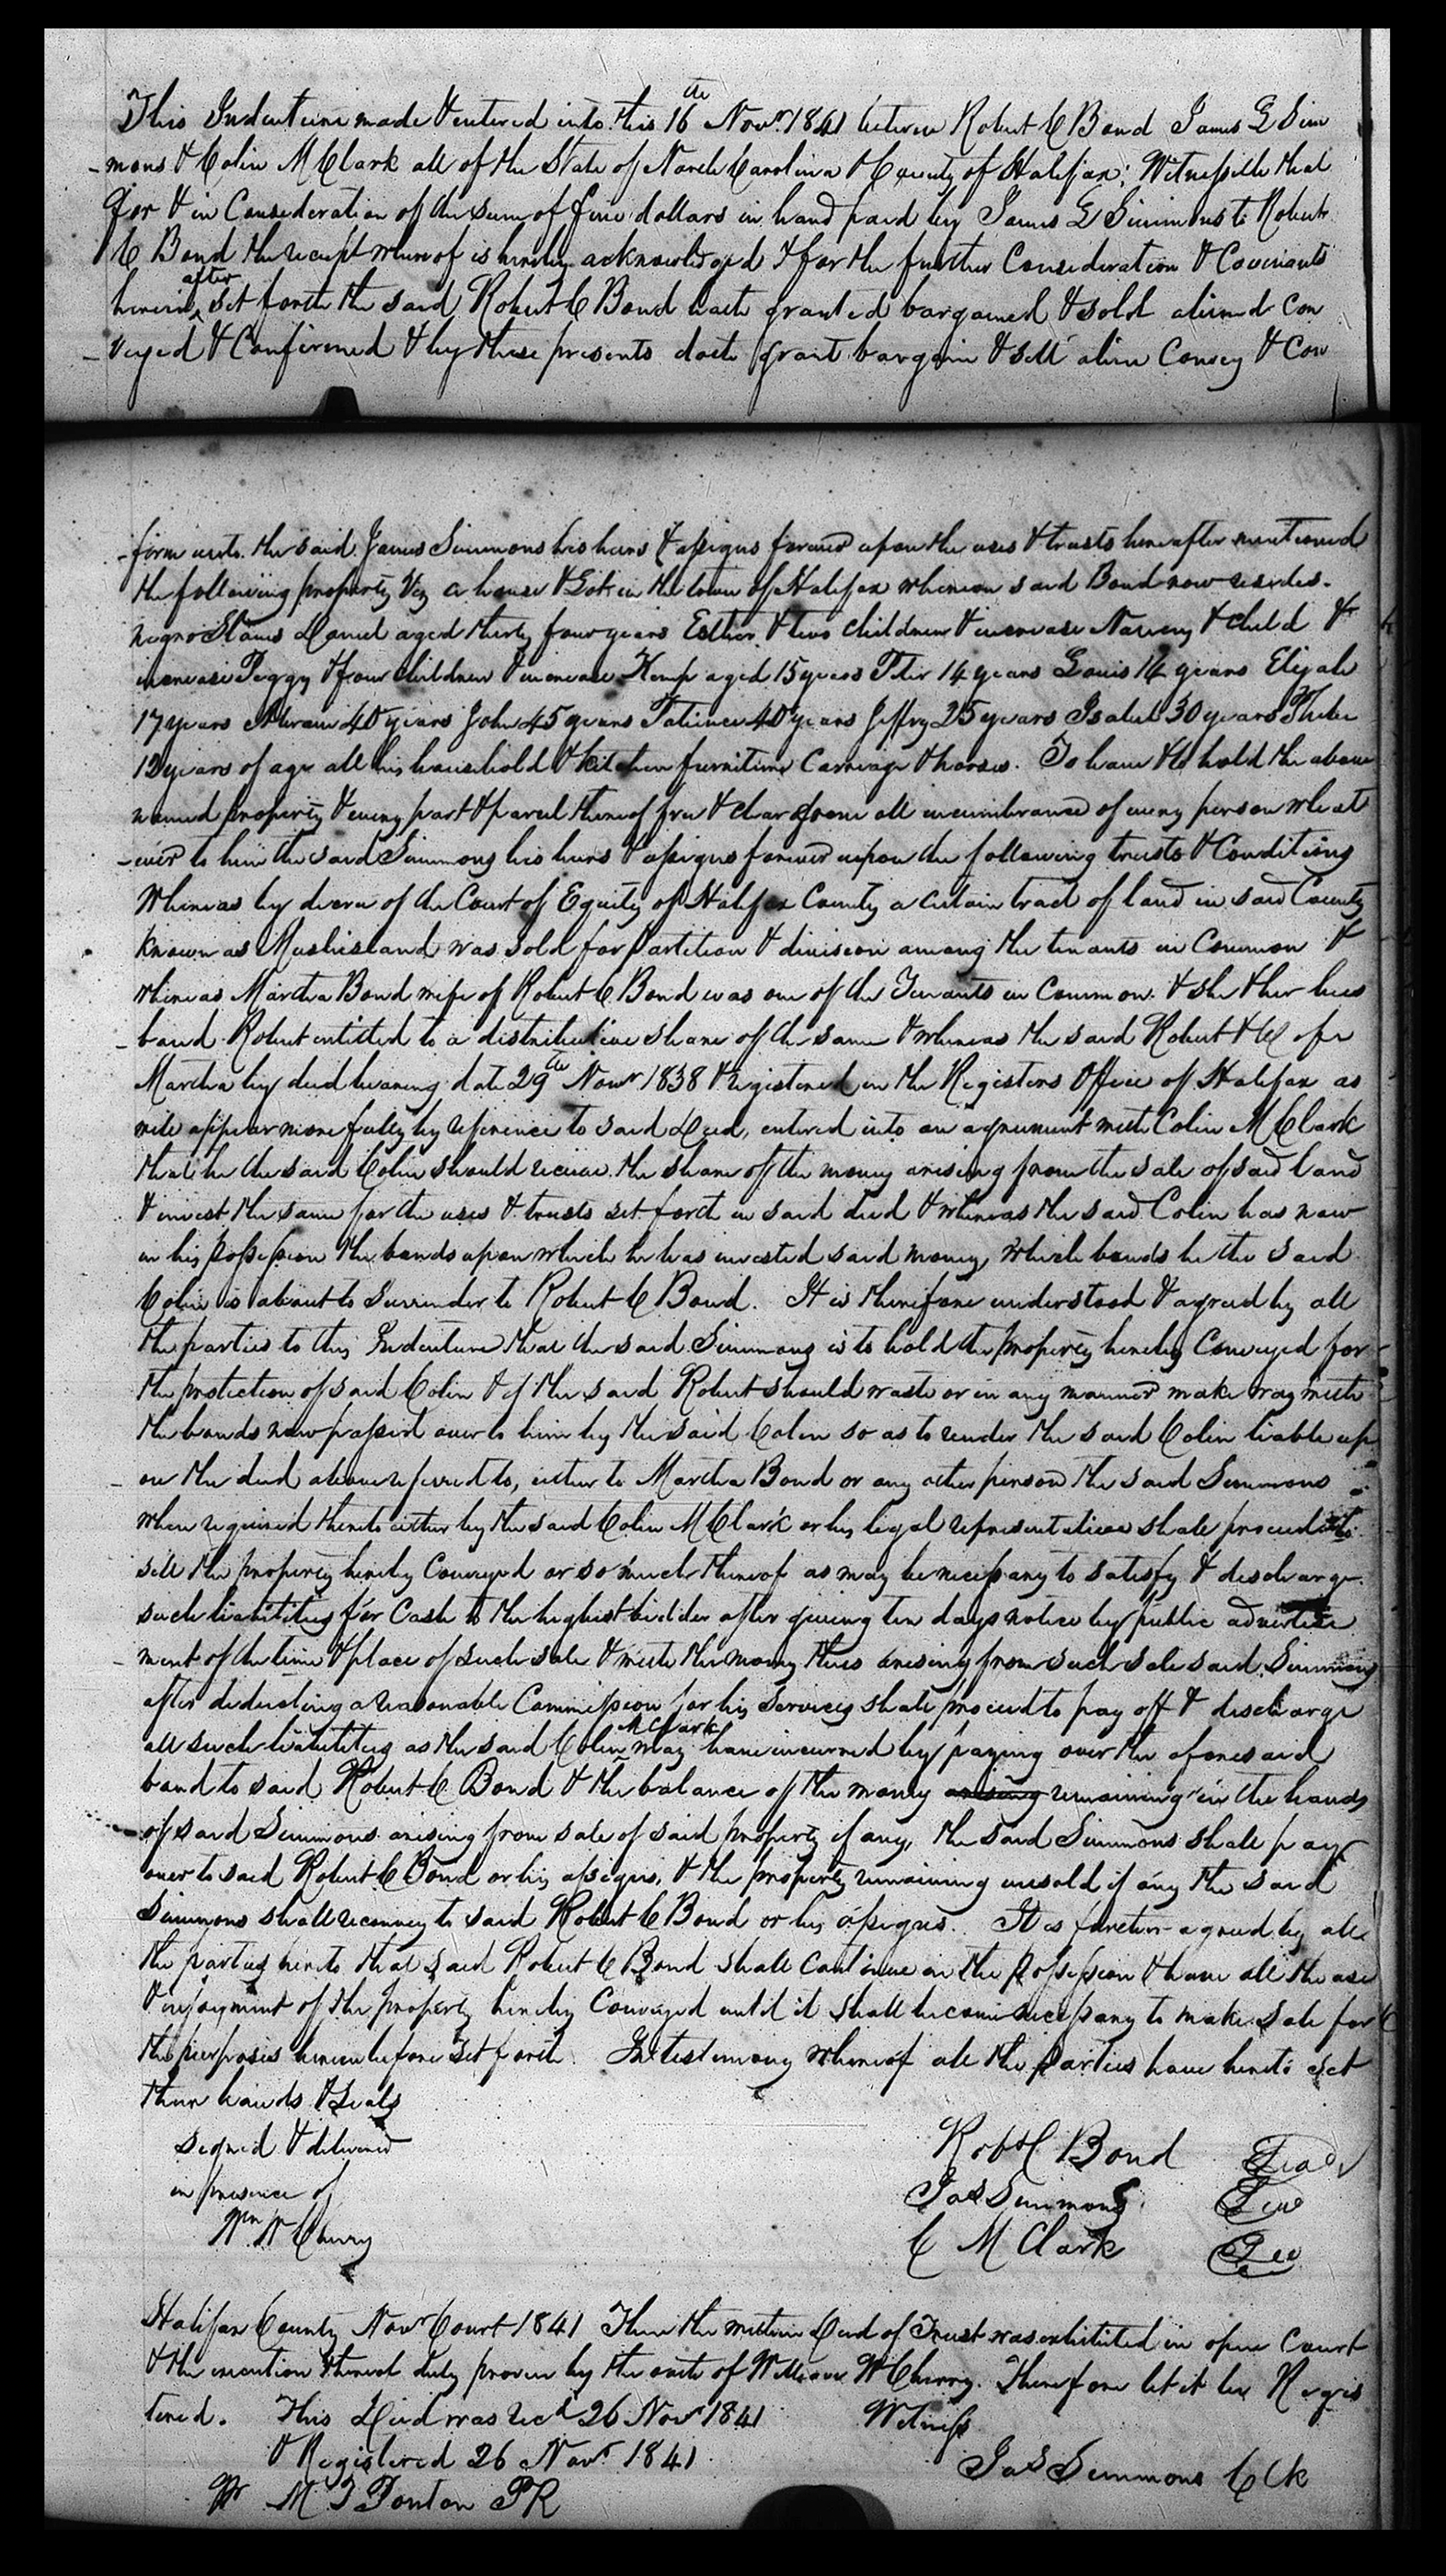 This Indenture made & entered into this 16th Novr 1841 between Robert C Bond James Sim
-mons & Colin M Clark all of the State of North Carolina & County of Halifax; Witnesseth that
for & in Consideration of the sum of five dollars in hand paid by James Simmons to Robert
C Bond the receipt whereof is hereby acknowledged & for the further Consideration & Covenants
herein after set forth the said Robert C Bond hath granted bargained & sold aliened con
-veyed & Confirmed & by these presents doth grant bargain & sell alien Convey & Con
-firm unto the said James Simmons his heirs & assigns forever upon the uses & trusts hereafter mentioned
the following property Viz a house & Lot in the town of Halifax whereon said Bond now resides.
negro Slaves Daniel aged thirty four years Esther & two children & increase Nancy & child &
increase Peggy & four children & increase Kemp aged 15 years Peter 14 years Louis 14 years Elijah
17 years Abram 40 years John 45 years Patience 40 years Jeffry 25 years Isabel 30 years
12 years of age all his household & kitchen furniture Carriage & horses. To have & to hold the above
named property & every part & parcel thereof free & clear from all incumbrance of every person what
-ever to him the said Simmons his heirs & assigns forever upon the following trusts & Conditions
Whereas by decree of the Court of Equity of Halifax County a certain tract of land in said County
known as was sold for partition & division among the tenants in Common &
whereas Martha Bond wife of Robert C Bond was one of the Tenants in Common & she & her hus
-band Robert entitled to a distributive share of the same & whereas the said Robert & Wife
Martha by deed bearing date 29th Novr 1838 & registered in the Registers Office of Halifax as
will appear more fully by reference to said Deed, entered into an agreement with Colin M Clark
that he the said Colin should receive the share of the money arising from the sale of said land
& invest the same for the uses & trusts set forth in said deed & whereas the said Colin has now
in his possession the bonds upon which he has invested said money, which bonds he the said
Colin is about to Surrender to Robert C Bond. It is therefore understood & agreed by all
the parties to this Indenture that the said Simmons is to hold the property hereby Conveyed for
the protection of said Colin & if the said Robert should waste or in any manner make way with
the bonds now passed over to him by the said Colin so as to render the said Colin liable up
-on the deed above referred to, either to Martha Bond or any other person the said Simmons
when required thereto either by the said Colin M Clark or his legal representative shall proceed to
sell the property hereby Conveyed or so much thereof as may be necessary to satisfy & discharge
such liabilities for Cash to the highest bidder after giving ten days notice by public advertise
-ment of the time & place of such sale & with the money thus arising from such sale said Simmons
after deducting a reasonable Commission for his Services shall proceed to pay off & discharge
all such liabilities as the said Colin M Clark may have incurred by paying over the aforesaid
bond to said Robert C Bond & the balance of the money arising remaining in the hands
of said Simmons arising from sale of said property if any, the said Simmons shall pay
over to said Robert C Bond or his assigns, & the property remaining unsold if any the said
Simmons shall reconvey to said Robert C Bond or his assigns. It is further agreed by all
the parties hereto that said Robert C Bond shall Continue in the possession & have all the use
& enjoyment of the property hereby Conveyed until it shall become necessary to make Sale for
the purposes herein before set forth. In testimony whereof all the parties have hereto set
their hands & Seals
Signed & delivered
in presence of
Wm W Cherry
Robt C Bond Seal
Jas Simmons Seal
C M Clark Seal
Halifax County Novr Court 1841 Then the within Deed of Trust was exhibited in open Court
& the execution thereof duly proven by the oath of William W Cherry. Therefore let it be Regis
tered. This Deed was recd 26 Novr 1841 Witness
& Registered 26 Novr 1841 Jas Simmons Clk
M Ponton PR